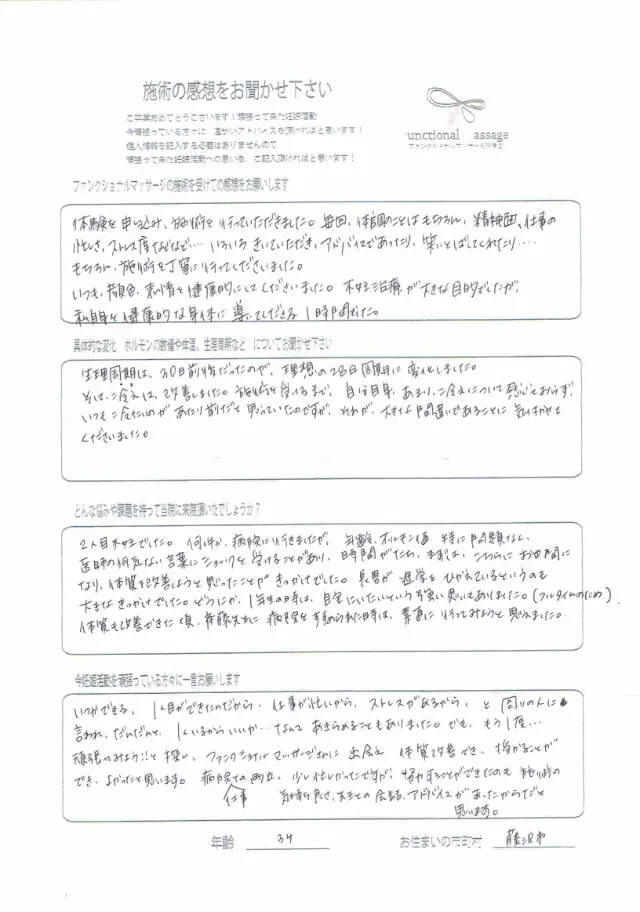 施術の感想をお聞かせ下さい
ご卒業おめでとうございます！頑張って来た妊娠活動
今頑張っている方々に 温かいアドバイスを頂ければと思います！
個人情報を記入する必要はありませんので
頑張って来た妊娠活動への思いを、ご記入頂ければと思います！
unctional assage
ファンクショナルマッサージの施術を受けての感想をお願いします
体験を申し込み、施術を行っていただきました。毎回、体調のことはもちろん、精神面、仕事の
忙しさ、ストレス度などなど…いろいろきいていただき、アドバイスであったり、笑いとばしてくれたり‥‥
もちろん、施術も丁寧に行ってくださいました。
いつも、顔色、表情を健康的にしてくださいました。不妊治療が大きな目的でしたが、
私自身を健康的な身体に導いてくださる1時間だった。
具体的な変化 ホルモンの数値や体温、生理周期など についてお聞かせ下さい
生理周期は、30日前後だったのが、理想の28日周期に変化しました。
そして、冷えは、改善しました。施術を受けるまで、自分自身、あまり、冷えについて感じておらず、
いつも冷たいのがあたり前だと思っていたのですが、それが、大きな間違いであることに気付かせて
くださいました。
どんな悩みや課題を持って当院に来院頂いたでしょうか？
2人目不妊でした。何件か、病院に行きましたが、年齢、ホルモン値 特に問題なし。
医師の何気ない言葉にショックを受けることがあり、時間がたち、まずは、こちらにお世話に
なり、体質を改善しようと思ったことがきっかけでした。長男が進学をひかえているというのも
大きなきっかけでした。どうにか、1年生の時は、自宅にいたいという強い思いもありました。(フルタイムのため)
体質も改善できた頃、斉藤先生に病院をすすめられた時は、素直に行ってみようと思えました。
今妊娠活動を頑張っている方々に一言お願いします
いつかできる、1人目ができたのだから、仕事が忙しいから、ストレスがあるから、と周りの人に
言われ、だんだんと、1人いるからいいか…なんてあきらめることもありました。でも、もう1度…
頑張ってみよう!!と探し、ファンクショナルマッサージさんに出会え 体質改善でき、授かることが
でき、よかったと思います。病院との両立、少し忙しかったですが、授かることができたのも施術の
仕事 気持ち良さ、先生との会話、アドバイスがあったからだと
思います。
年齢 34 お住まいの市町村 藤沢市